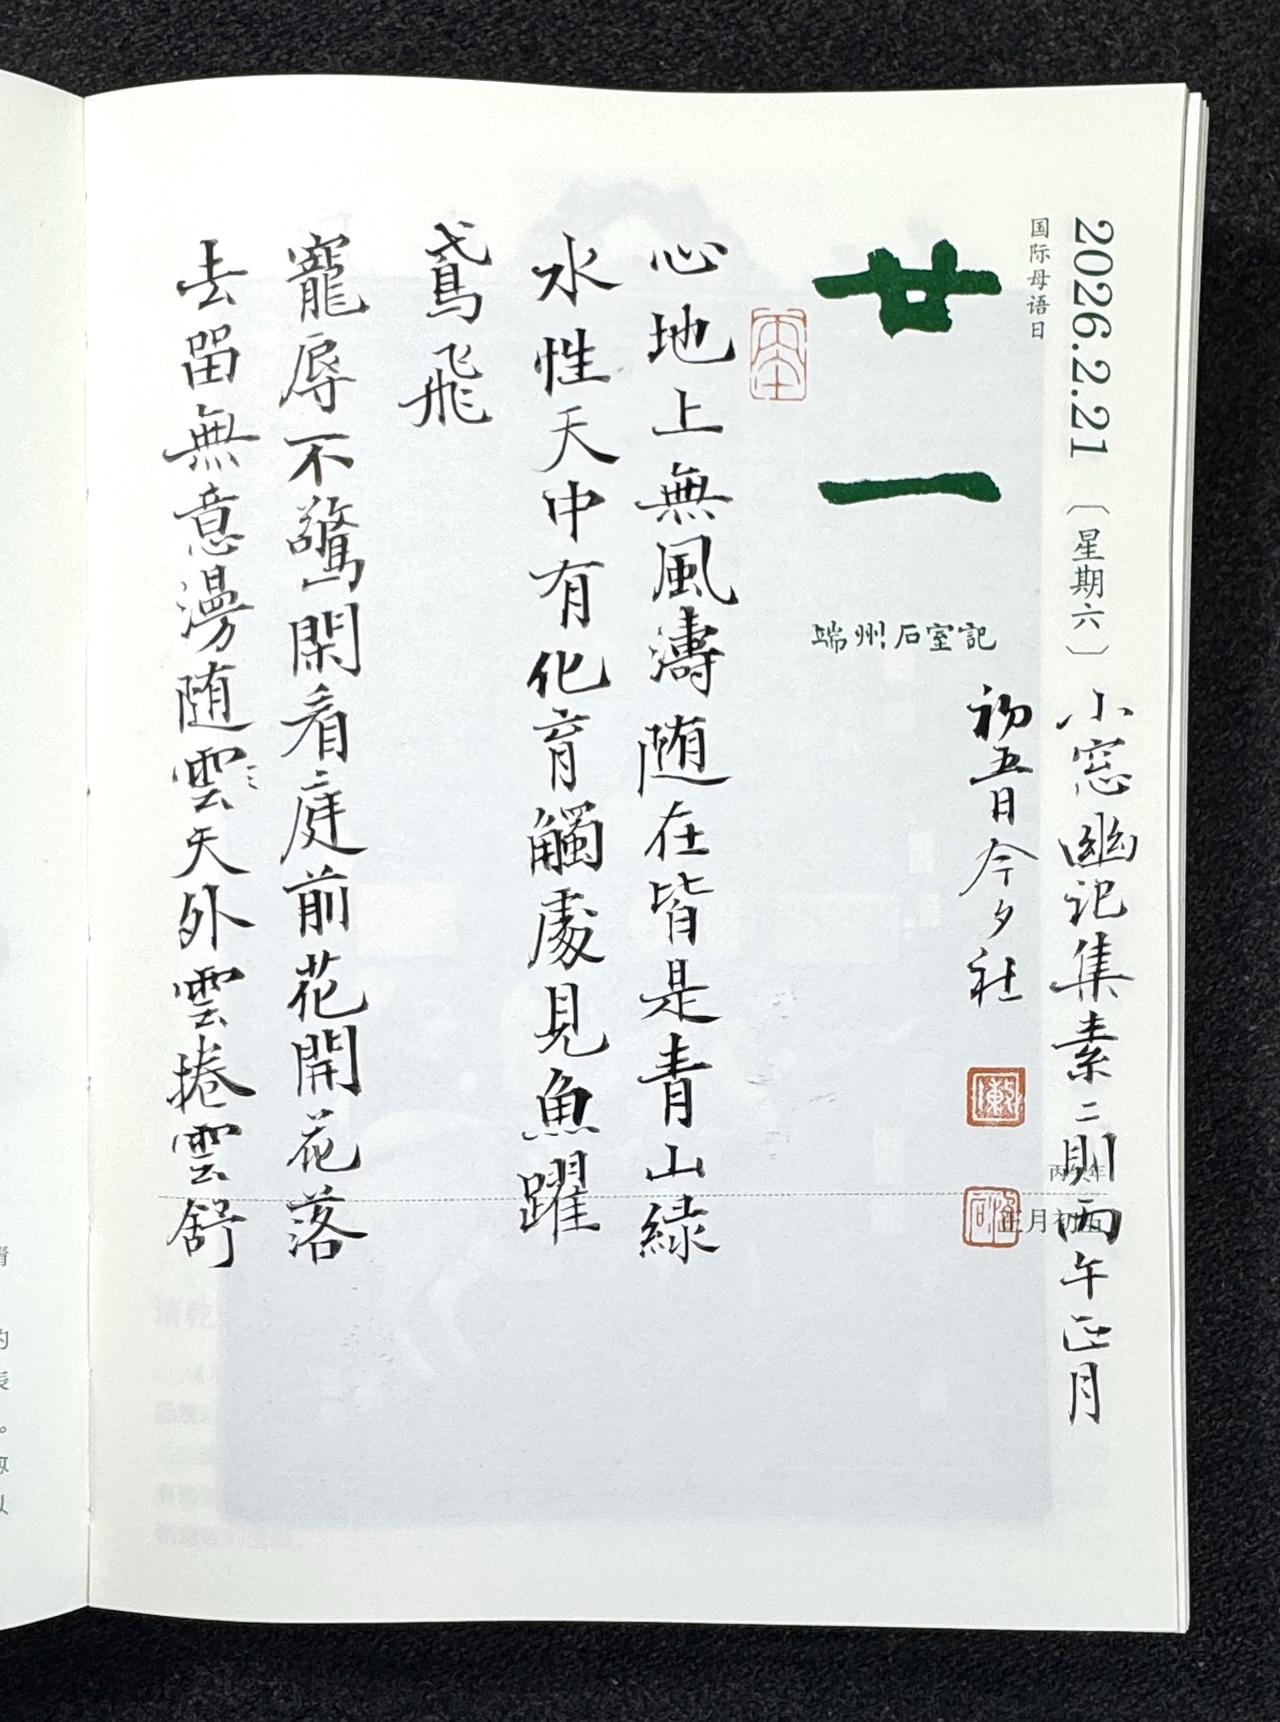 2026.2.21〔星期六〕
国际母语日
小窓幽記集素二則丙午正月
初五日今夕社
丙午年
正月初五
廿一
端州石室記
心地上無風濤随在皆是青山緑
水性天中有化育觸處見魚躍
鳶飛
寵辱不驚閑看庭前花開花落
去留無意漫随雲天外雲捲雲舒